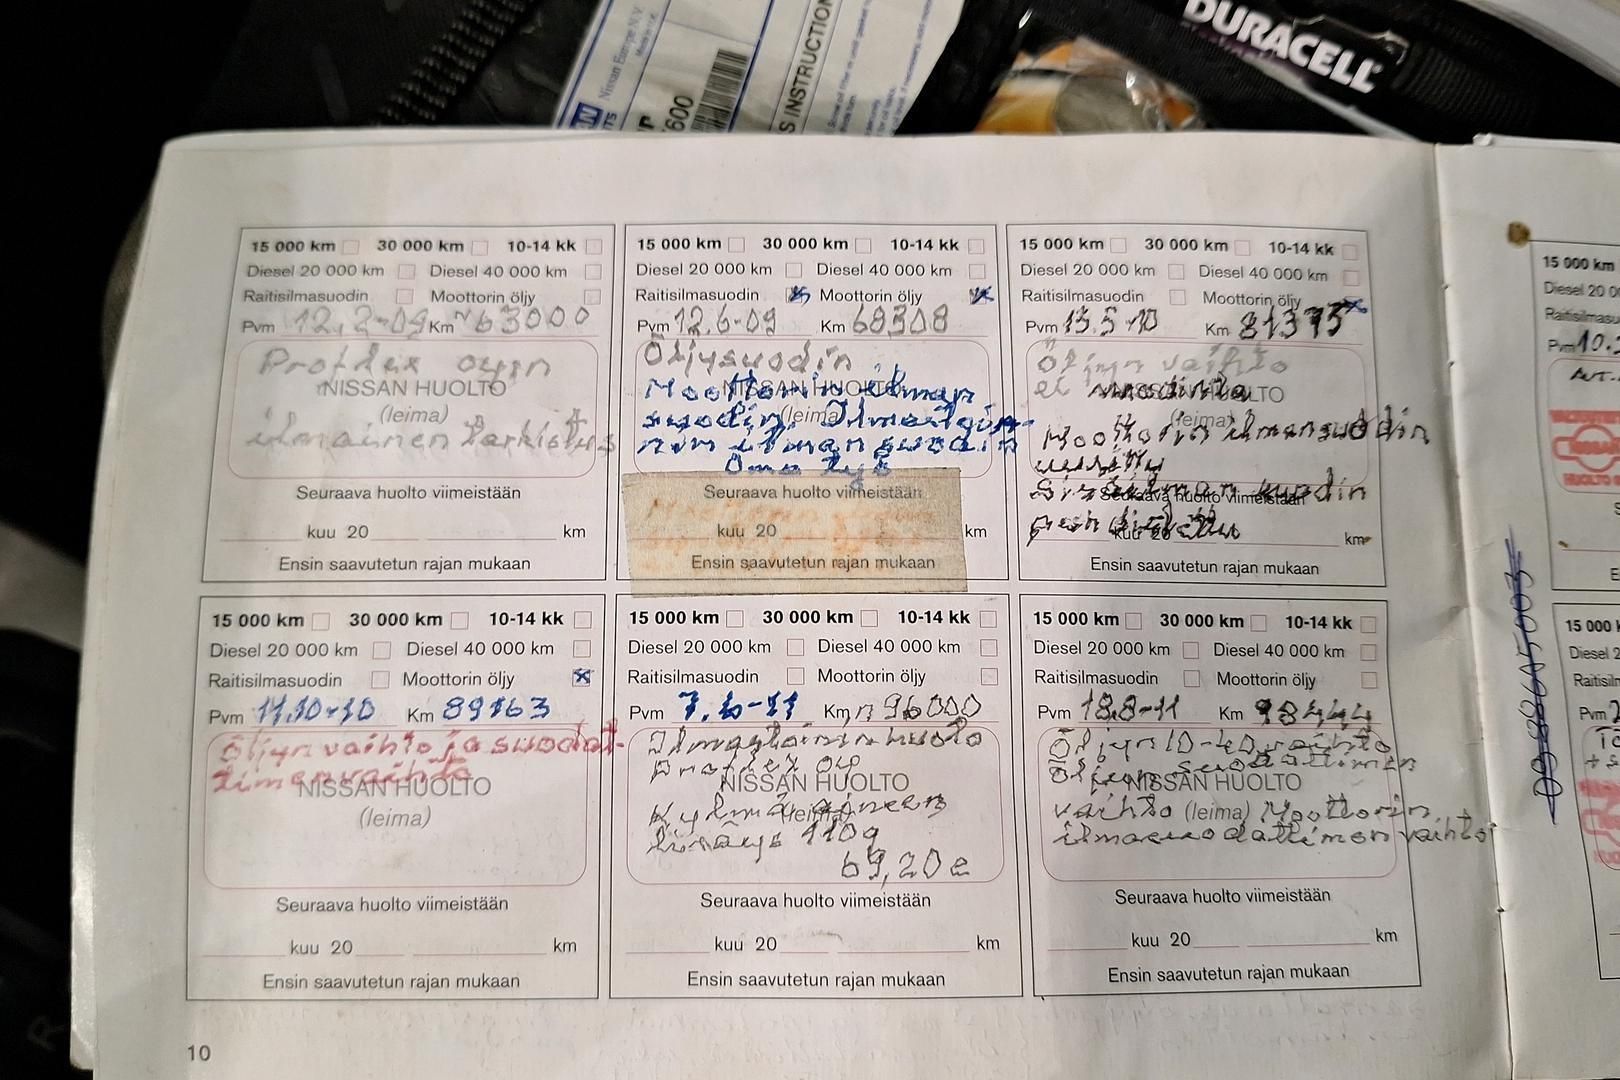 DURACELL
Nissan Europe N.V.
S INSTRUCTION
600
15 000 km 30 000 km 10-14 kk
Diesel 20 000 km Diesel 40 000 km
Raitisilmasuodin Moottorin öljy
Pvm 12.2-09 Km ~63000
Profdex oy:n
NISSAN HUOLTO
(leima)
ilmainen tarkistus
Seuraava huolto viimeistään
kuu 20 km
Ensin saavutetun rajan mukaan
15 000 km 30 000 km 10-14 kk
Diesel 20 000 km Diesel 40 000 km
Raitisilmasuodin x Moottorin öljy x
Pvm 12.6-09 Km 68308
Öljysuodin
Moottorin ilman
NISSAN HUOLTO
suodin. Ilmastoin-
(leima)
nin ilman suodin
Oma työ
Seuraava huolto viimeistään
kuu 20 km
Ensin saavutetun rajan mukaan
15 000 km 30 000 km 10-14 kk
Diesel 20 000 km Diesel 40 000 km
Raitisilmasuodin Moottorin öljy x
Pvm 13.5-10 Km 81375
Öljyn vaihto
ei suodinta
NISSAN HUOLTO
(leima)
Moottorin ilmansuodin
uusittu
Sisäilman suodin
Seuraava huolto viimeistään
kuu 20 km
Ensin saavutetun rajan mukaan
15 000 km 30 000 km 10-14 kk
Diesel 20 000 km Diesel 40 000 km
Raitisilmasuodin Moottorin öljy x
Pvm 11.10-10 Km 89163
Öljyn vaihto ja suodat-
timen vaihto
NISSAN HUOLTO
(leima)
Seuraava huolto viimeistään
kuu 20 km
Ensin saavutetun rajan mukaan
15 000 km 30 000 km 10-14 kk
Diesel 20 000 km Diesel 40 000 km
Raitisilmasuodin Moottorin öljy
Pvm 7.6-11 Km n 96000
Ilmastoinin huolto
Profdex oy
NISSAN HUOLTO
Kylmäaineen
(leima)
lisäys 110g
69,20e
Seuraava huolto viimeistään
kuu 20 km
Ensin saavutetun rajan mukaan
15 000 km 30 000 km 10-14 kk
Diesel 20 000 km Diesel 40 000 km
Raitisilmasuodin Moottorin öljy
Pvm 18.8-11 Km 98444
Öljyn 10-40 vaihto
Öljyn suodattimen
NISSAN HUOLTO
vaihto (leima) Moottorin
ilmasuodattimen vaihto
Seuraava huolto viimeistään
kuu 20 km
Ensin saavutetun rajan mukaan
10
15 000 km